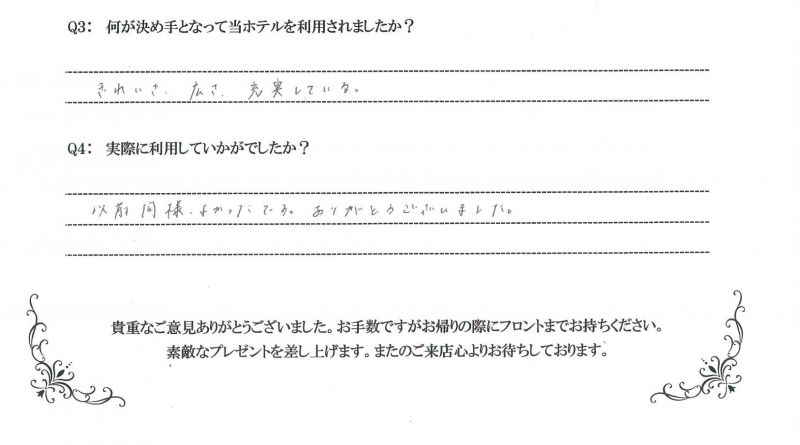 Q3： 何が決め手となって当ホテルを利用されましたか？
きれいさ、広さ、充実している。
Q4： 実際に利用していかがでしたか？
以前同様、よかったです。ありがとうございました。
貴重なご意見ありがとうございました。お手数ですがお帰りの際にフロントまでお持ちください。
素敵なプレゼントを差し上げます。またのご来店心よりお待ちしております。